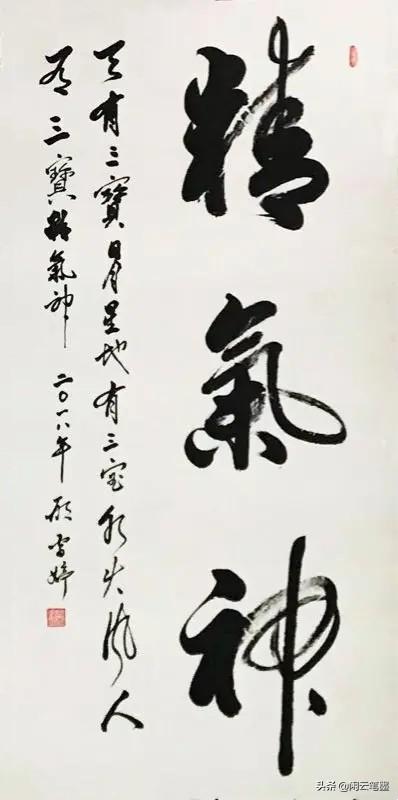 精氣神
天有三寶日月星地有三宝水火风人
有三寶精氣神 二〇一八年
头条 @闲云笔墨